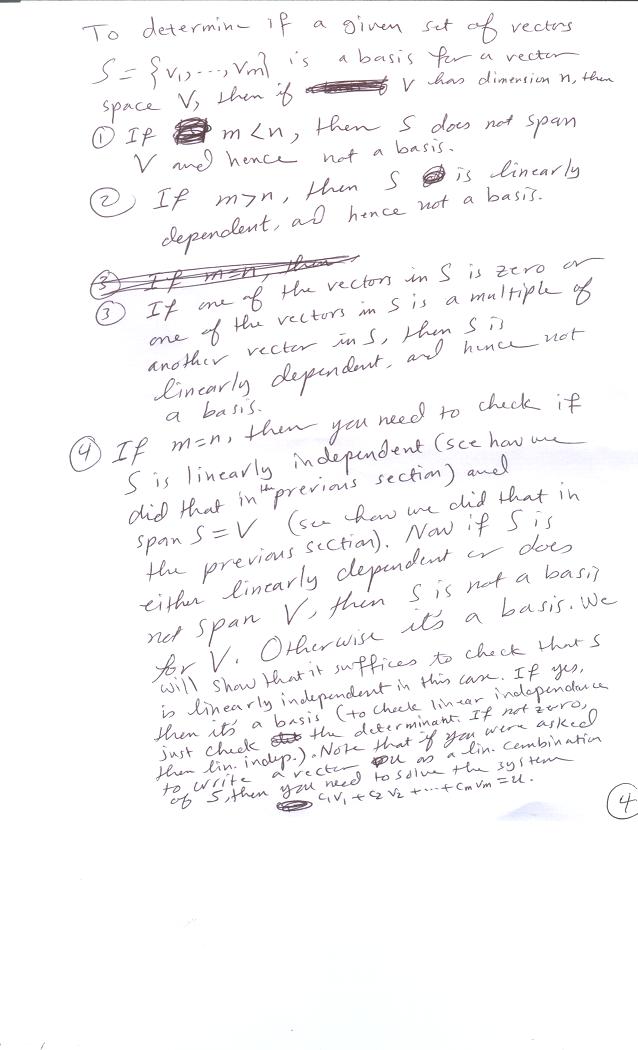 To determine if a given set of vectors
S = {v1, ..., vm} is a basis for a vector
space V, then if V has dimension n, then
① If m < n, then S does not span
V and hence not a basis.
② If m > n, then S is linearly
dependent, and hence not a basis.
3 If m = n, then
③ If one of the vectors in S is zero or
one of the vectors in S is a multiple of
another vector in S, then S is
linearly dependent, and hence not
a basis.
④ If m = n, then you need to check if
S is linearly independent (see how we
did that in the previous section) and
span S = V (see how we did that in
the previous section). Now if S is
either linearly dependent or does
not span V, then S is not a basis
for V. Otherwise it's a basis. We
will show that it suffices to check that S
is linearly independent in this case. If yes,
then it's a basis (to check linear independence
just check the determinant. If not zero,
then lin. indep.). Note that if you were asked
to write a vector u as a lin. combination
of S, then you need to solve the system
c1v1 + c2v2 + ... + cmvm = u.
④